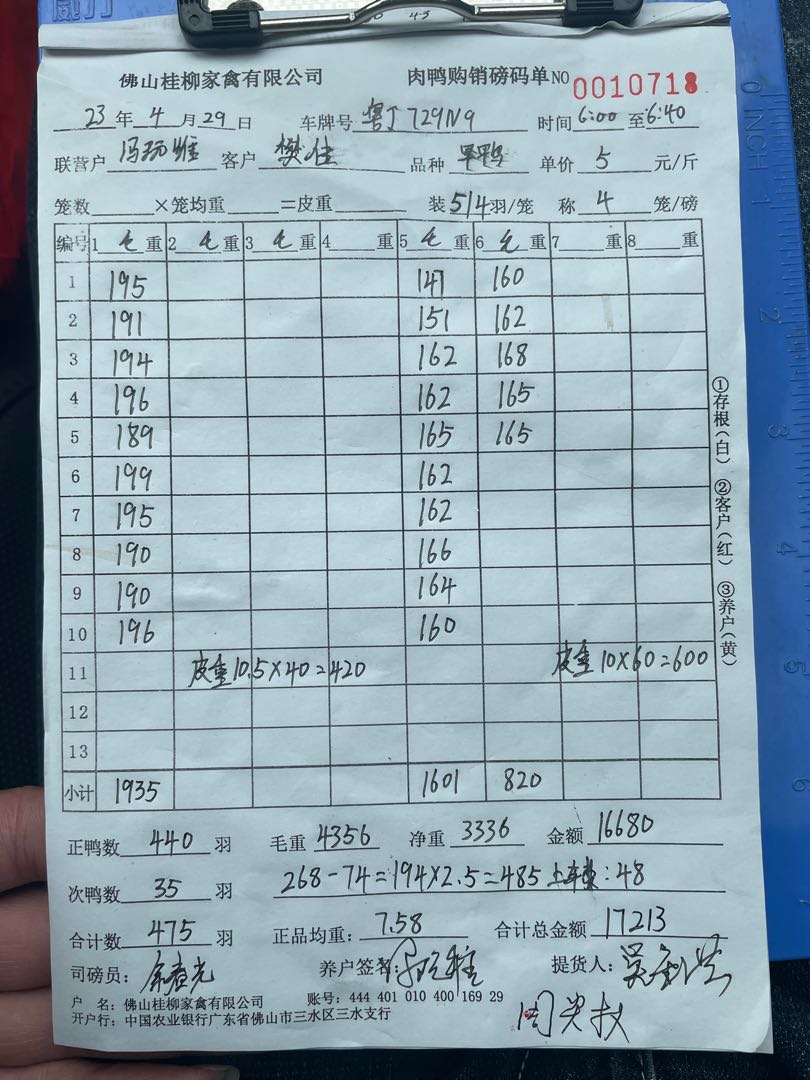 佛山桂柳家禽有限公司 肉鸭购销磅码单 NO 0010718
23 年 4 月 29 日 车牌号 粤J729N9 时间 6:00 至 6:40
联营户 客户 樊佳 品种 单价 5 元/斤
笼数 ×笼均重 =皮重 装 5/4 羽/笼 称 4 笼/磅
编号 1 毛 重 2 毛 重 3 毛 重 4 重 5 毛 重 6 毛 重 7 重 8 重
1 195 147 160
2 191 151 162
3 194 162 168
4 196 162 165
5 189 165 165
6 199 162
7 195 162
8 190 166
9 190 164
10 196 160
11 皮重10.5×40=420 皮重10×60=600
12
13
小计 1935 1601 820
①存根(白) ②客户(红) ③养户(黄)
正鸭数 440 羽 毛重 4356 净重 3336 金额 16680
次鸭数 35 羽 268-74=194×2.5=485 上车费:48
合计数 475 羽 正品均重: 7.58 合计总金额 17213
司磅员: 养户签名: 提货人:
户 名: 佛山桂柳家禽有限公司 账号: 444 401 010 400 169 29
开户行: 中国农业银行广东省佛山市三水区三水支行